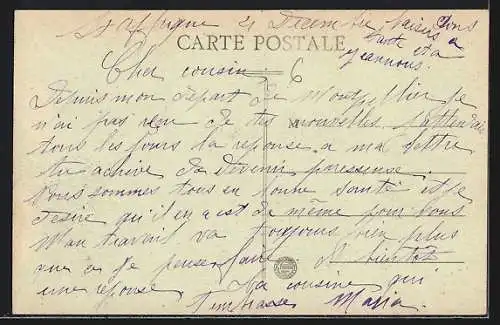 St Affrique 21 Décembre baisers Tous
CARTE POSTALE
tante et a
Jeannous.
Cher cousin 6
Depuis mon départ de Montpellier je
n'ai pas reçu de tes nouvelles j'attendais
tous les jours la reponse a ma lettre
tu de devenir paresseuse.
Nous sommes tous en bonne santé et je
desire qu'il en est de même pour vous
Mon travail va toujours bien plus
que ce que je pensais faire. A bientot
une reponse Ta cousine qui
t'embrasse Maria